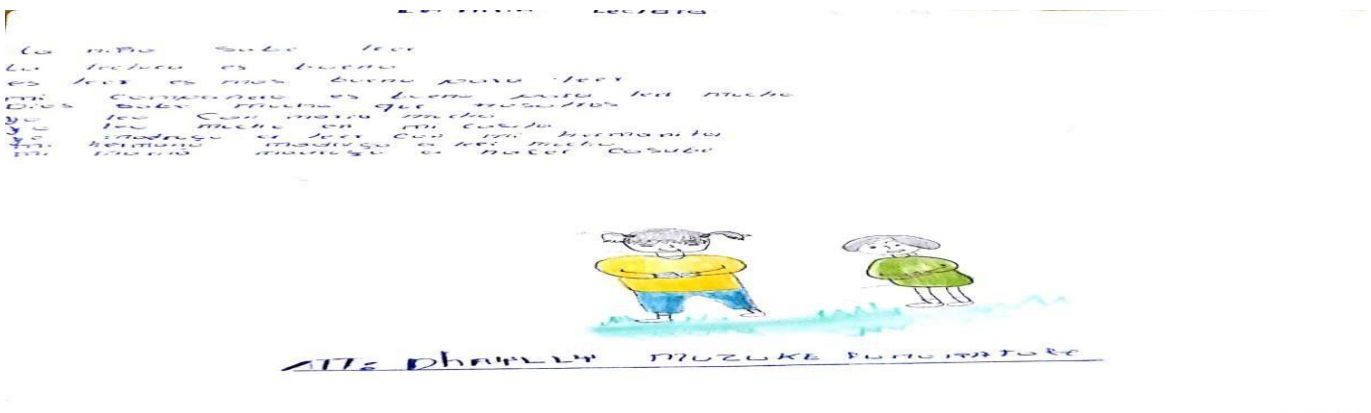 Lectura
La niña sabe leer
La lectura es bueno
es leer es mas bueno para leer
mi compañero es bueno para leer mucho
Dios sabe mucho que nosotros
yo leo con maria mucho
yo leo mucho en mi casita
yo madrugo a leer con mi hermanita
mi hermano madruga a leer mucho
mi mamá madruga a hacer casabe
ATTe